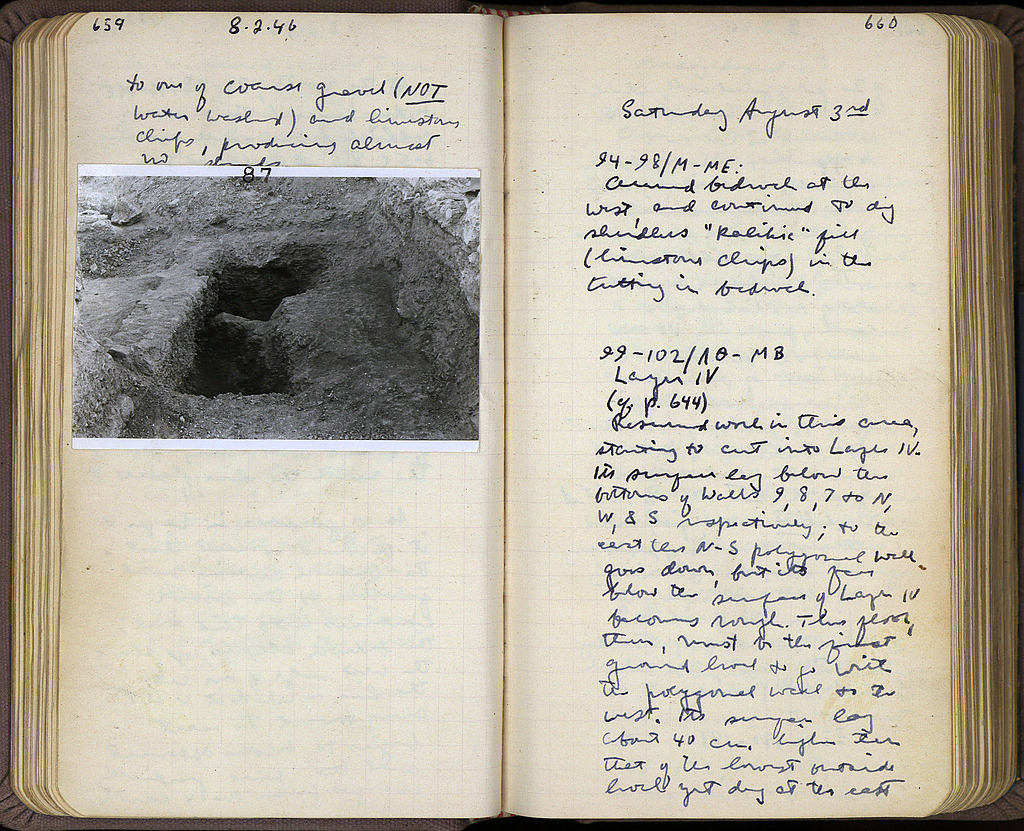 659
8.2.46
to one of coarse gravel (NOT
water washed) and limestone
chips, producing almost
no sherds
87
660
Saturday August 3rd
94-98/M-ME:
Cleaned bedrock at the
west, and continued to dig
sherdless "Kalikia" fill
(limestone chips) in the
cutting in bedrock.
99-102/ΛΘ-MB
Layer IV
(cf. p. 644)
Resumed work in this area,
starting to cut into Layer IV.
Its surface lay below the
bottoms of Walls 9, 8, 7 to N,
W, & S respectively; to the
east the N-S polygonal wall
goes down, but its face
below the surface of Layer IV
becomes rough. This floor,
then, must be the first
ground level to go with
the polygonal wall to the
west. Its surface lay
about 40 cm. higher than
that of the lowest outside
level yet dug at the east